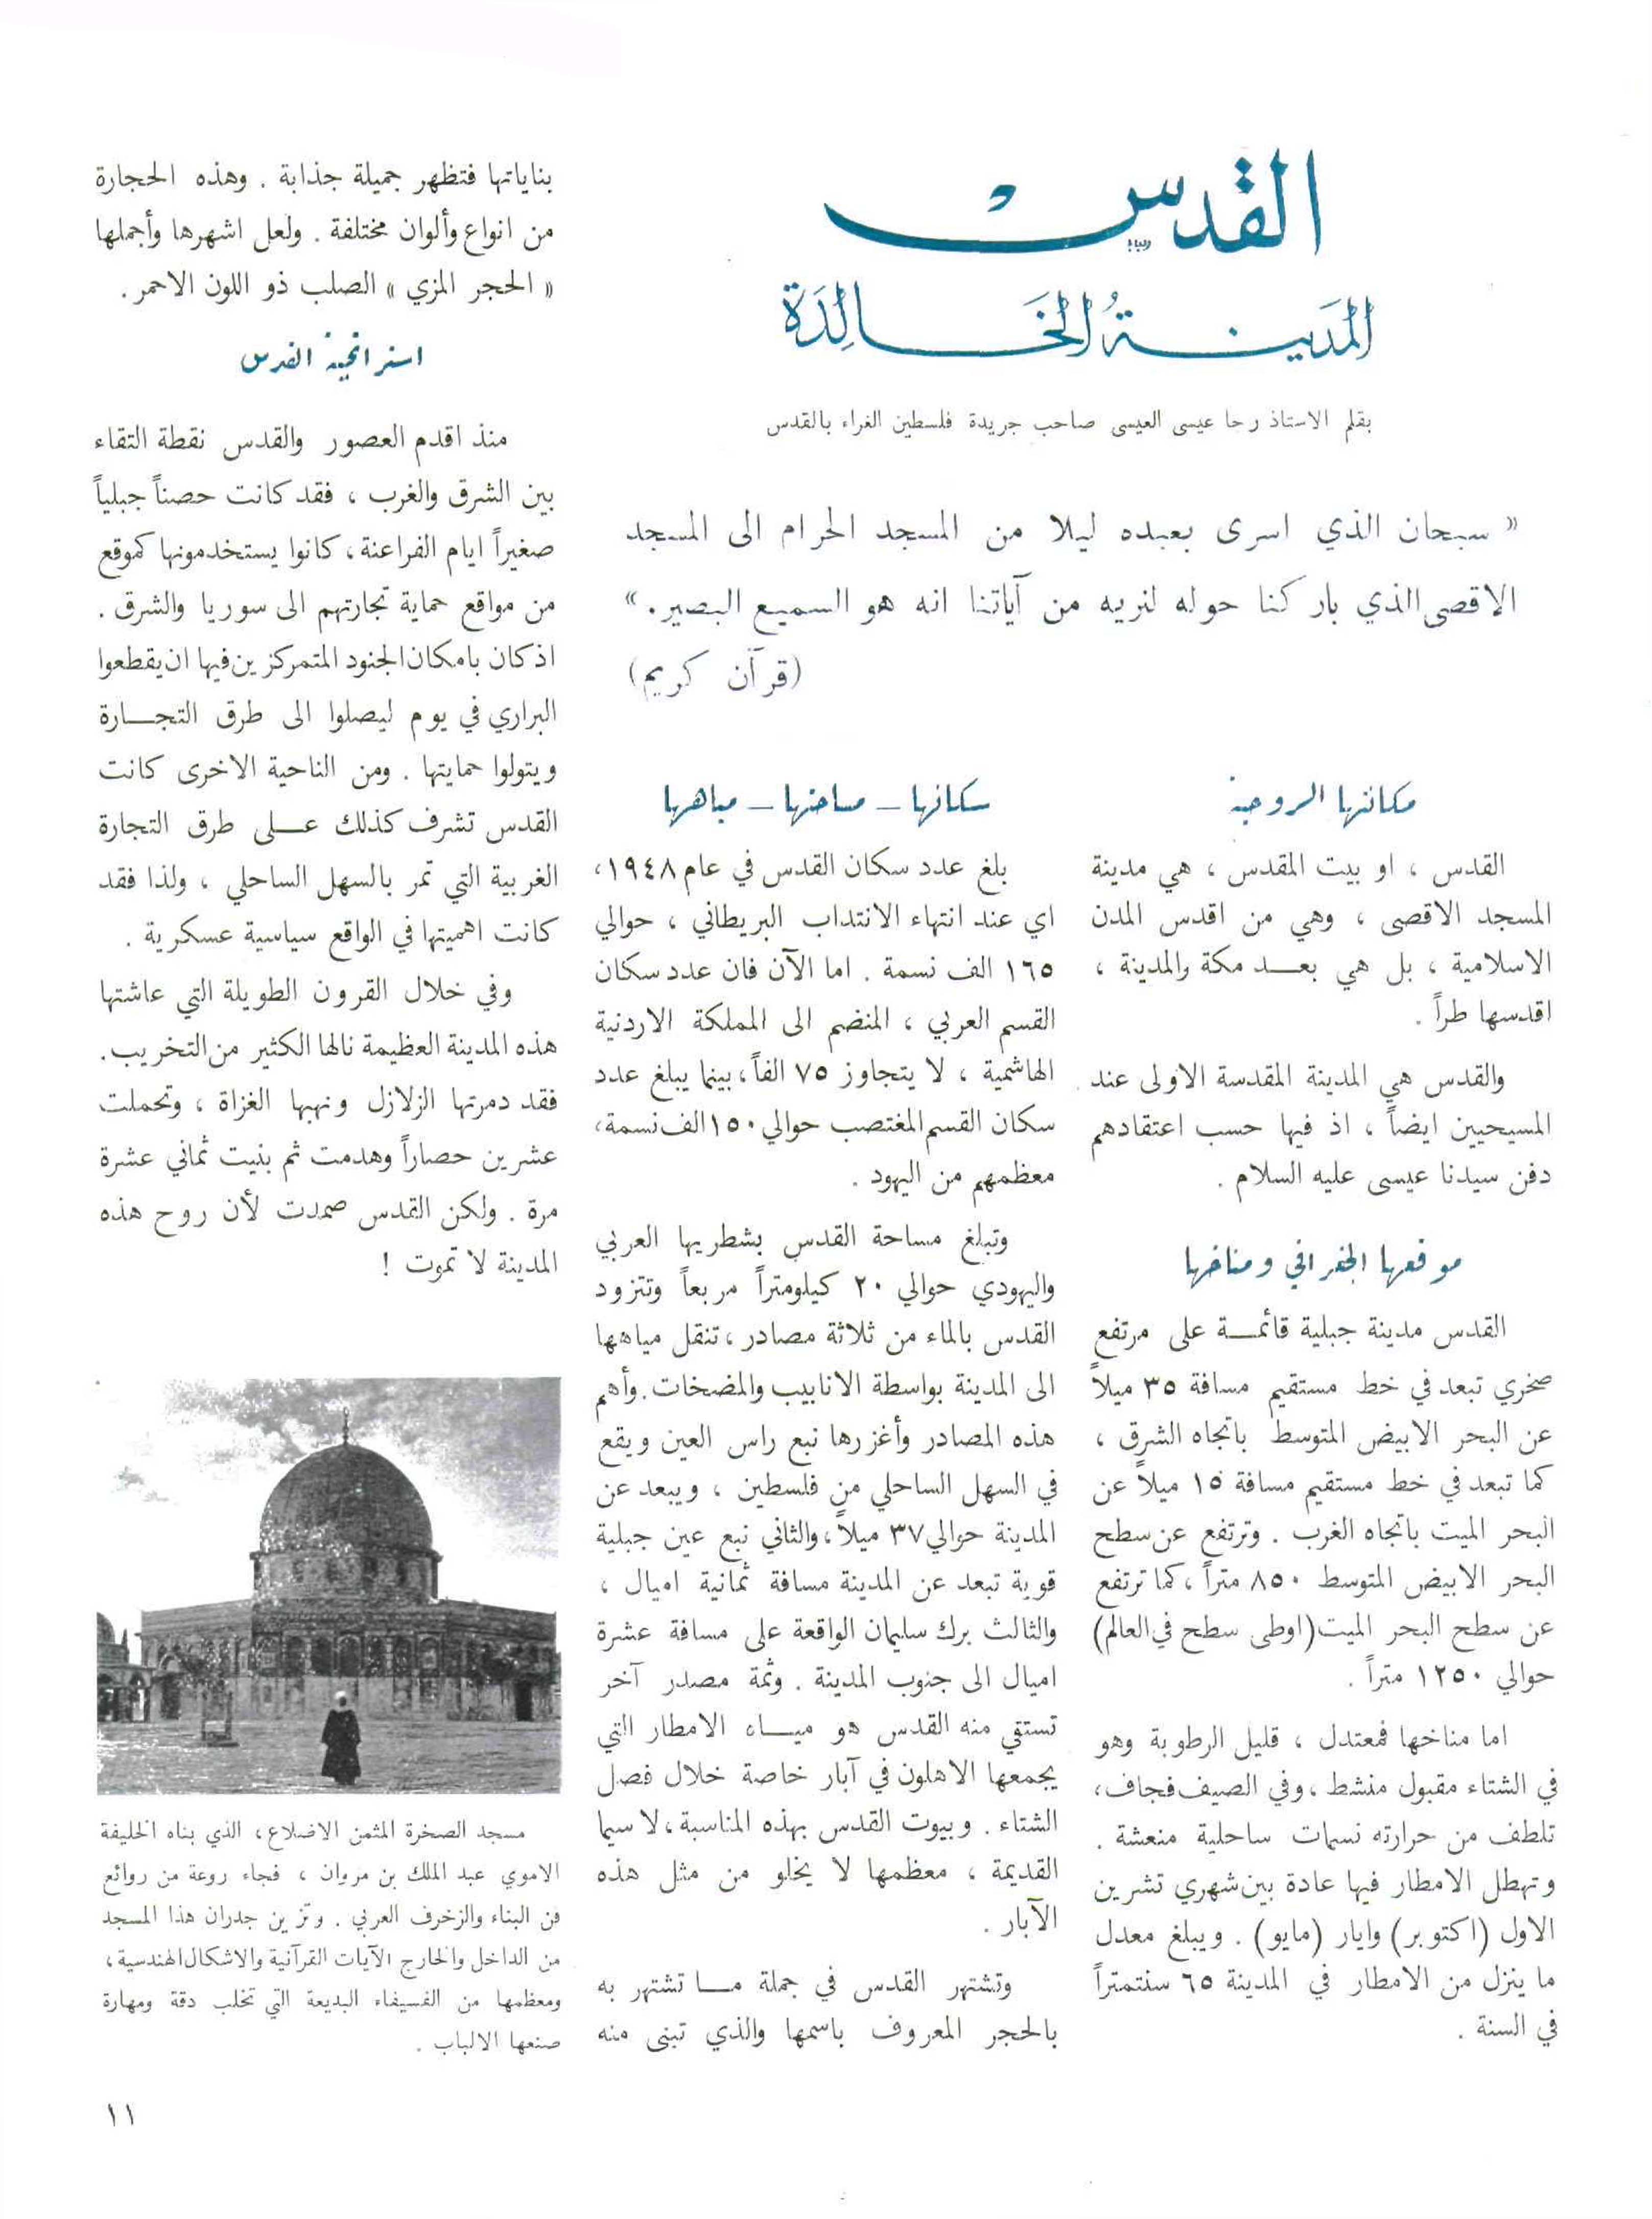 القدس
المدينة الخالدة
بقلم الاستاذ رجا عيسى العيسى صاحب جريدة فلسطين الغراء بالقدس
« سبحان الذي اسرى بعبده ليلا من المسجد الحرام الى المسجد
الاقصى الذي باركنا حوله لنريه من آياتنا انه هو السميع البصير. »
(قرآن كريم)
مكانتها الروحية
القدس ، او بيت المقدس ، هي مدينة
المسجد الاقصى ، وهي من اقدس المدن
الاسلامية ، بل هي بعد مكة والمدينة ،
اقدسها طراً .
والقدس هي المدينة المقدسة الاولى عند
المسيحيين ايضاً ، اذ فيها حسب اعتقادهم
دفن سيدنا عيسى عليه السلام .
موقعها الجغرافي ومناخها
القدس مدينة جبلية قائمة على مرتفع
صخري تبعد في خط مستقيم مسافة ٣٥ ميلاً
عن البحر الابيض المتوسط باتجاه الشرق ،
كما تبعد في خط مستقيم مسافة ١٥ ميلاً عن
البحر الميت باتجاه الغرب . وترتفع عن سطح
البحر الابيض المتوسط ٨٥٠ متراً ، كما ترتفع
عن سطح البحر الميت (اوطى سطح في العالم)
حوالي ١٢٥٠ متراً .
اما مناخها فمعتدل ، قليل الرطوبة وهو
في الشتاء مقبول منشط ، وفي الصيف فجاف ،
تلطف من حرارته نسمات ساحلية منعشة .
وتهطل الامطار فيها عادة بين شهري تشرين
الاول (اكتوبر) وايار (مايو) . ويبلغ معدل
ما ينزل من الامطار في المدينة ٦٥ سنتمتراً
في السنة .
سكانها – مساحتها – مياهها
بلغ عدد سكان القدس في عام ١٩٤٨ ،
اي عند انتهاء الانتداب البريطاني ، حوالي
١٦٥ الف نسمة . اما الآن فان عدد سكان
القسم العربي ، المنضم الى المملكة الاردنية
الهاشمية ، لا يتجاوز ٧٥ الفاً ، بينما يبلغ عدد
سكان القسم المغتصب حوالي ١٥٠ الف نسمة ،
معظمهم من اليهود .
وتبلغ مساحة القدس بشطريها العربي
واليهودي حوالي ٢٠ كيلومتراً مربعاً وتتزود
القدس بالماء من ثلاثة مصادر ، تنقل مياهها
الى المدينة بواسطة الانابيب والمضخات . وأهم
هذه المصادر وأغزرها نبع راس العين ويقع
في السهل الساحلي من فلسطين ، ويبعد عن
المدينة حوالي ٣٧ ميلاً ، والثاني نبع عين جبلية
قوية تبعد عن المدينة مسافة ثمانية اميال ،
والثالث برك سليمان الواقعة على مسافة عشرة
اميال الى جنوب المدينة . وثمة مصدر آخر
تستقي منه القدس هو مياه الامطار التي
يجمعها الاهلون في آبار خاصة خلال فصل
الشتاء . وبيوت القدس بهذه المناسبة ، لا سيما
القديمة ، معظمها لا يخلو من مثل هذه
الآبار .
وتشتهر القدس في جملة ما تشتهر به
بالحجر المعروف باسمها والذي تبنى منه
بناياتها فتظهر جميلة جذابة . وهذه الحجارة
من انواع وألوان مختلفة . ولعل اشهرها وأجملها
« الحجر المزي » الصلب ذو اللون الاحمر .
استراتيجية القدس
منذ اقدم العصور والقدس نقطة التقاء
بين الشرق والغرب ، فقد كانت حصناً جبلياً
صغيراً ايام الفراعنة ، كانوا يستخدمونها كموقع
من مواقع حماية تجارتهم الى سوريا والشرق .
اذ كان بامكان الجنود المتمركزين فيها ان يقطعوا
البراري في يوم ليصلوا الى طرق التجارة
ويتولوا حمايتها . ومن الناحية الاخرى كانت
القدس تشرف كذلك على طرق التجارة
الغربية التي تمر بالسهل الساحلي ، ولذا فقد
كانت اهميتها في الواقع سياسية عسكرية .
وفي خلال القرون الطويلة التي عاشتها
هذه المدينة العظيمة نالها الكثير من التخريب .
فقد دمرتها الزلازل ونهبها الغزاة ، وتحملت
عشرين حصاراً وهدمت ثم بنيت ثماني عشرة
مرة . ولكن القدس صمدت لأن روح هذه
المدينة لا تموت !
مسجد الصخرة المثمن الاضلاع ، الذي بناه الخليفة
الاموي عبد الملك بن مروان ، فجاء روعة من روائع
فن البناء والزخرف العربي . وتزين جدران هذا المسجد
من الداخل والخارج الآيات القرآنية والاشكال الهندسية ،
ومعظمها من الفسيفساء البديعة التي تخلب دقة ومهارة
صنعها الالباب .
١١